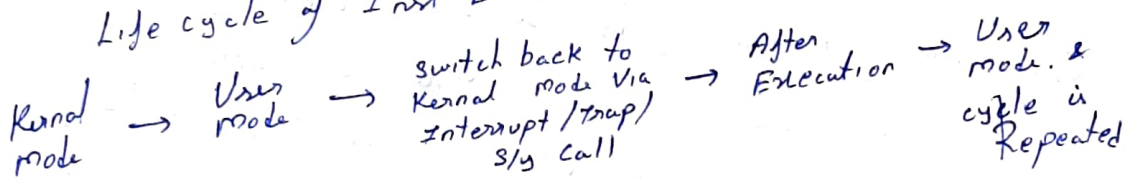 Life cycle of
Kernal mode → User mode → switch back to Kernal mode Via Interrupt / Trap / S/y Call → After Execution → User mode. & cycle is Repeated